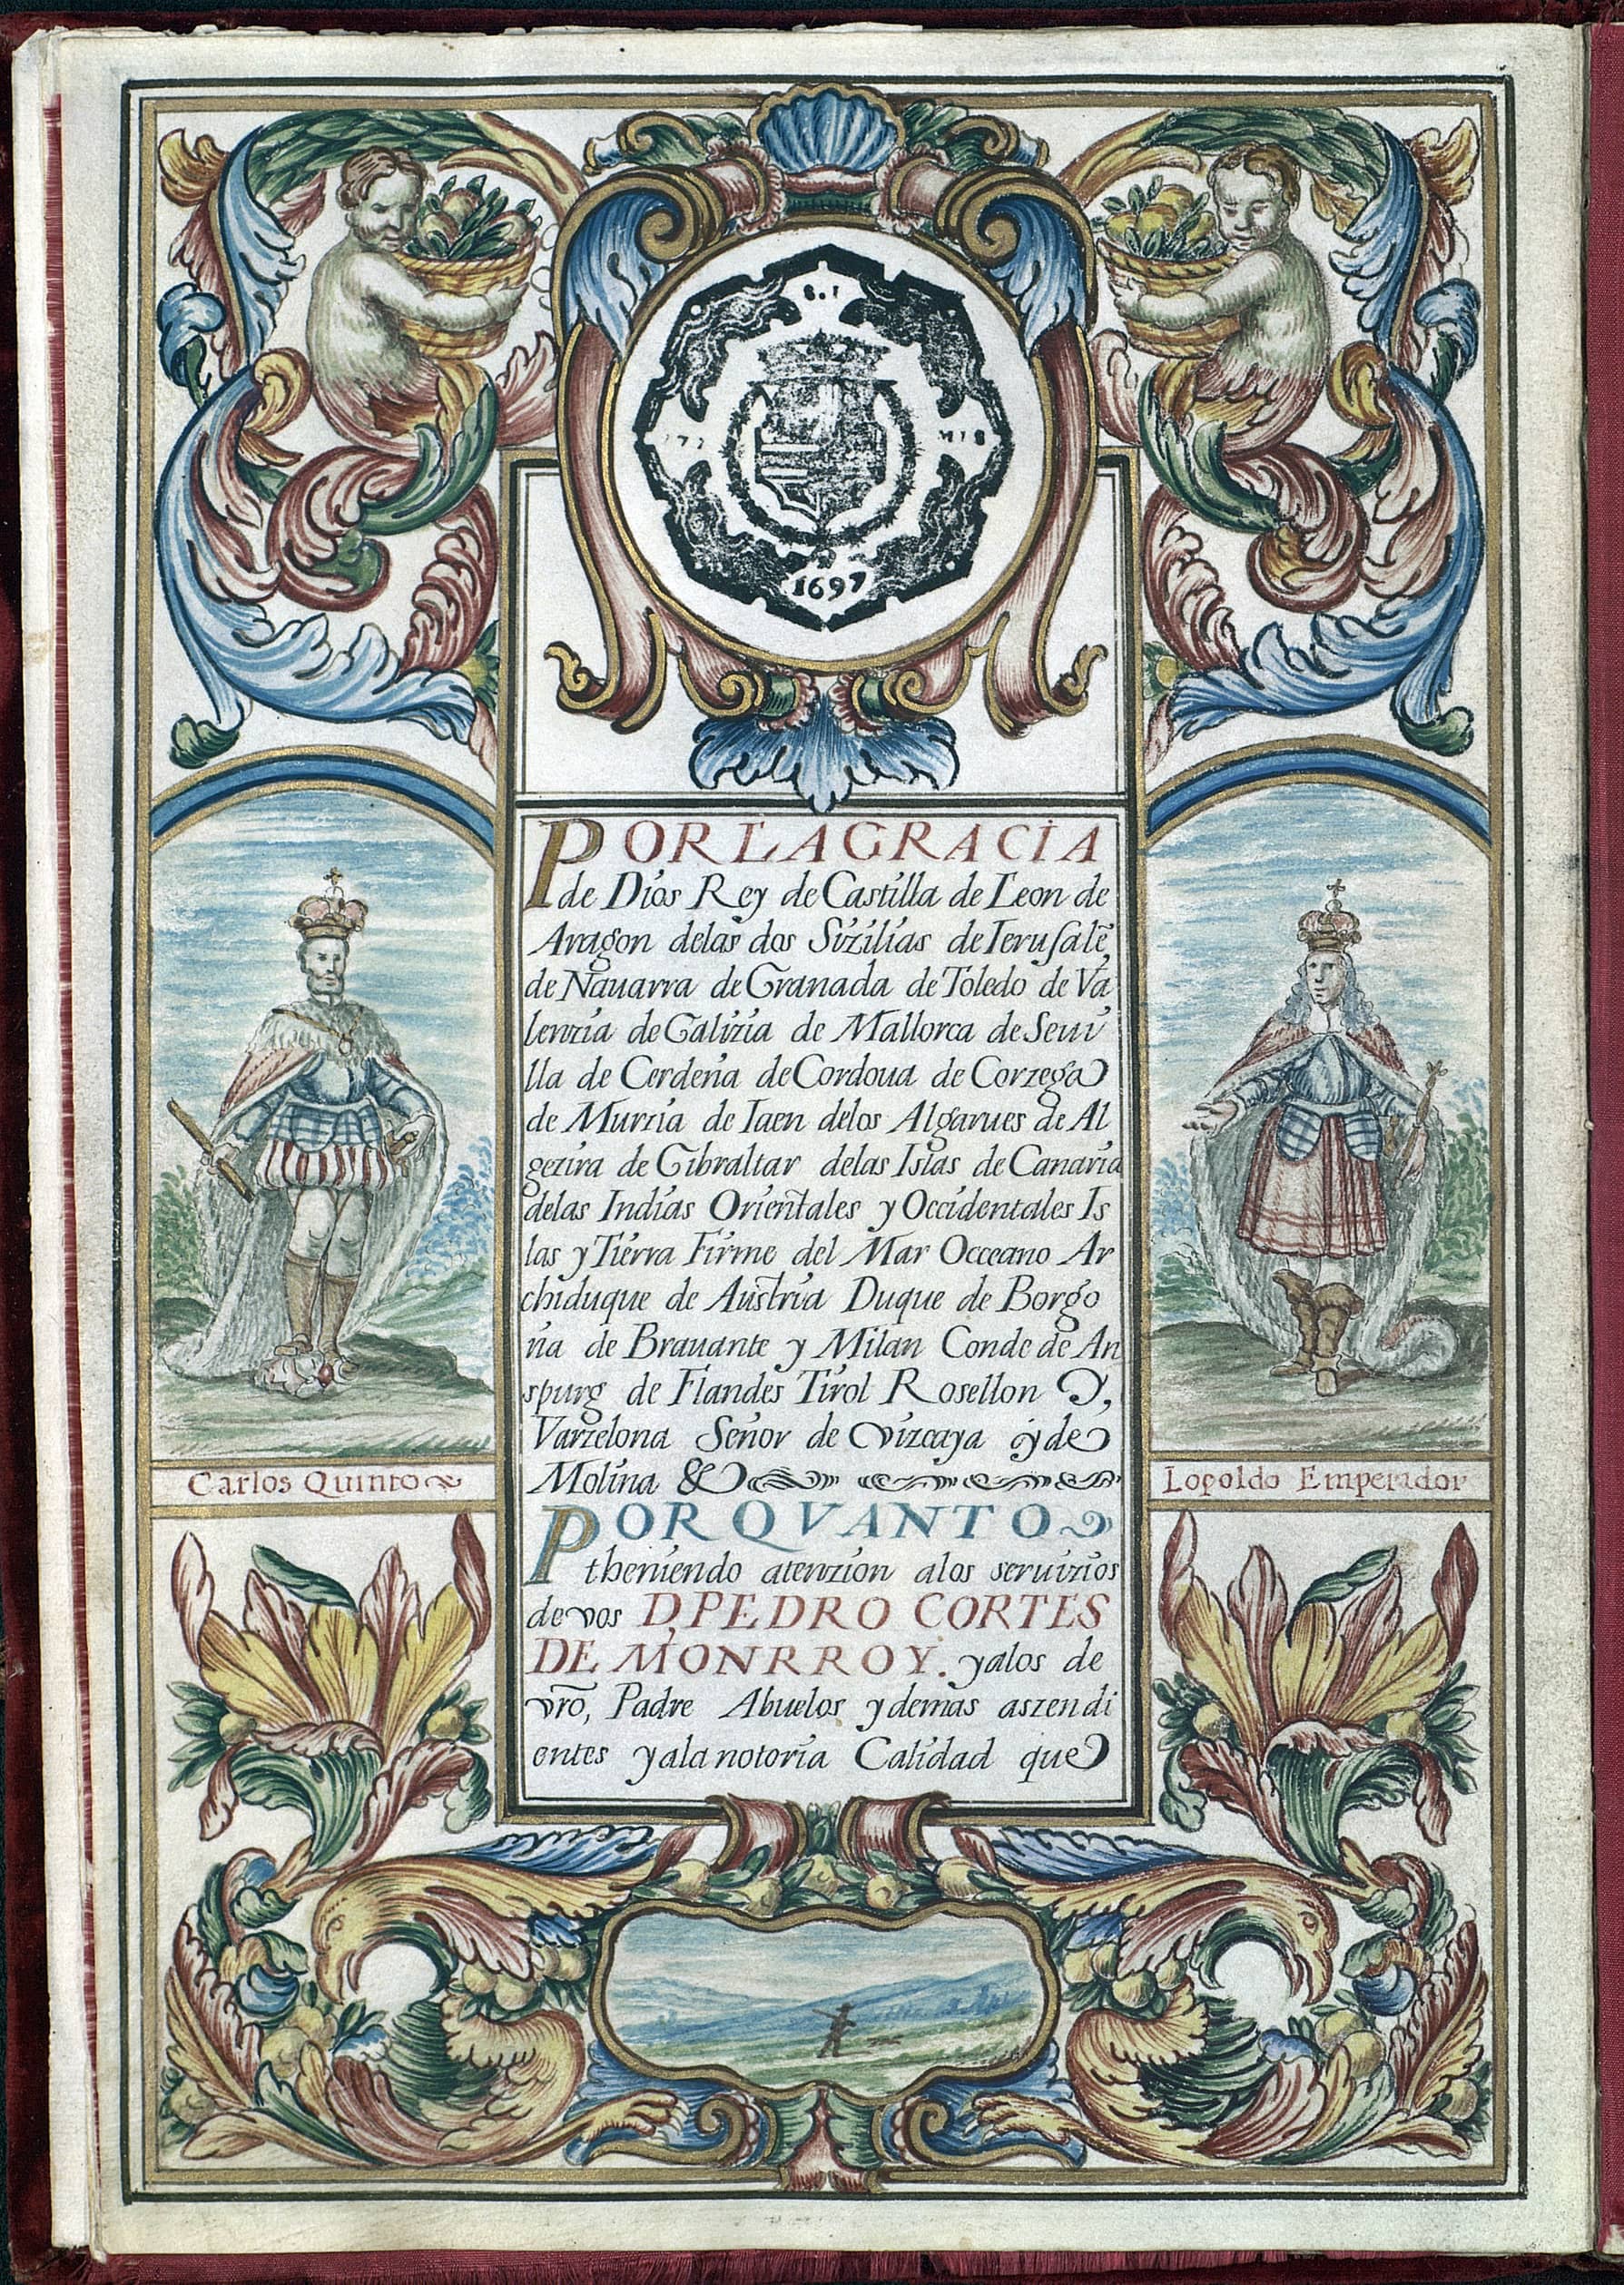 1697
POR LA GRACIA
de Dios Rey de Castilla de Leon de
Aragon delas dos Sizilias de Ierusalẽ
de Nauarra de Granada de Toledo de Va
lenzia de Galizia de Mallorca de Seui
lla de Cerdeña de Cordoua de Corzega
de Murzia de Iaen delos Algarues de Al
gezira de Gibraltar delas Islas de Canaria
delas Indias Orientales y Occidentales Is
las y Tierra Firme del Mar Occeano Ar
chiduque de Austria Duque de Borgo
ña de Brauante y Milan Conde de An
spurg de Flandes Tirol Rosellon y,
Varzelona Señor de Vizcaya y de
Molina &
POR QVANTO
theniendo atenzion alos seruizios
de vos D, PEDRO CORTES
DE MONRROY. yalos de
vrõ, Padre Abuelos y demas aszendi
entes yala notoria Calidad que
Carlos Quinto
Lopoldo Emperador